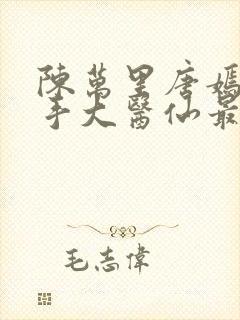 陳萬里唐嫣
手大醫仙最
毛志偉